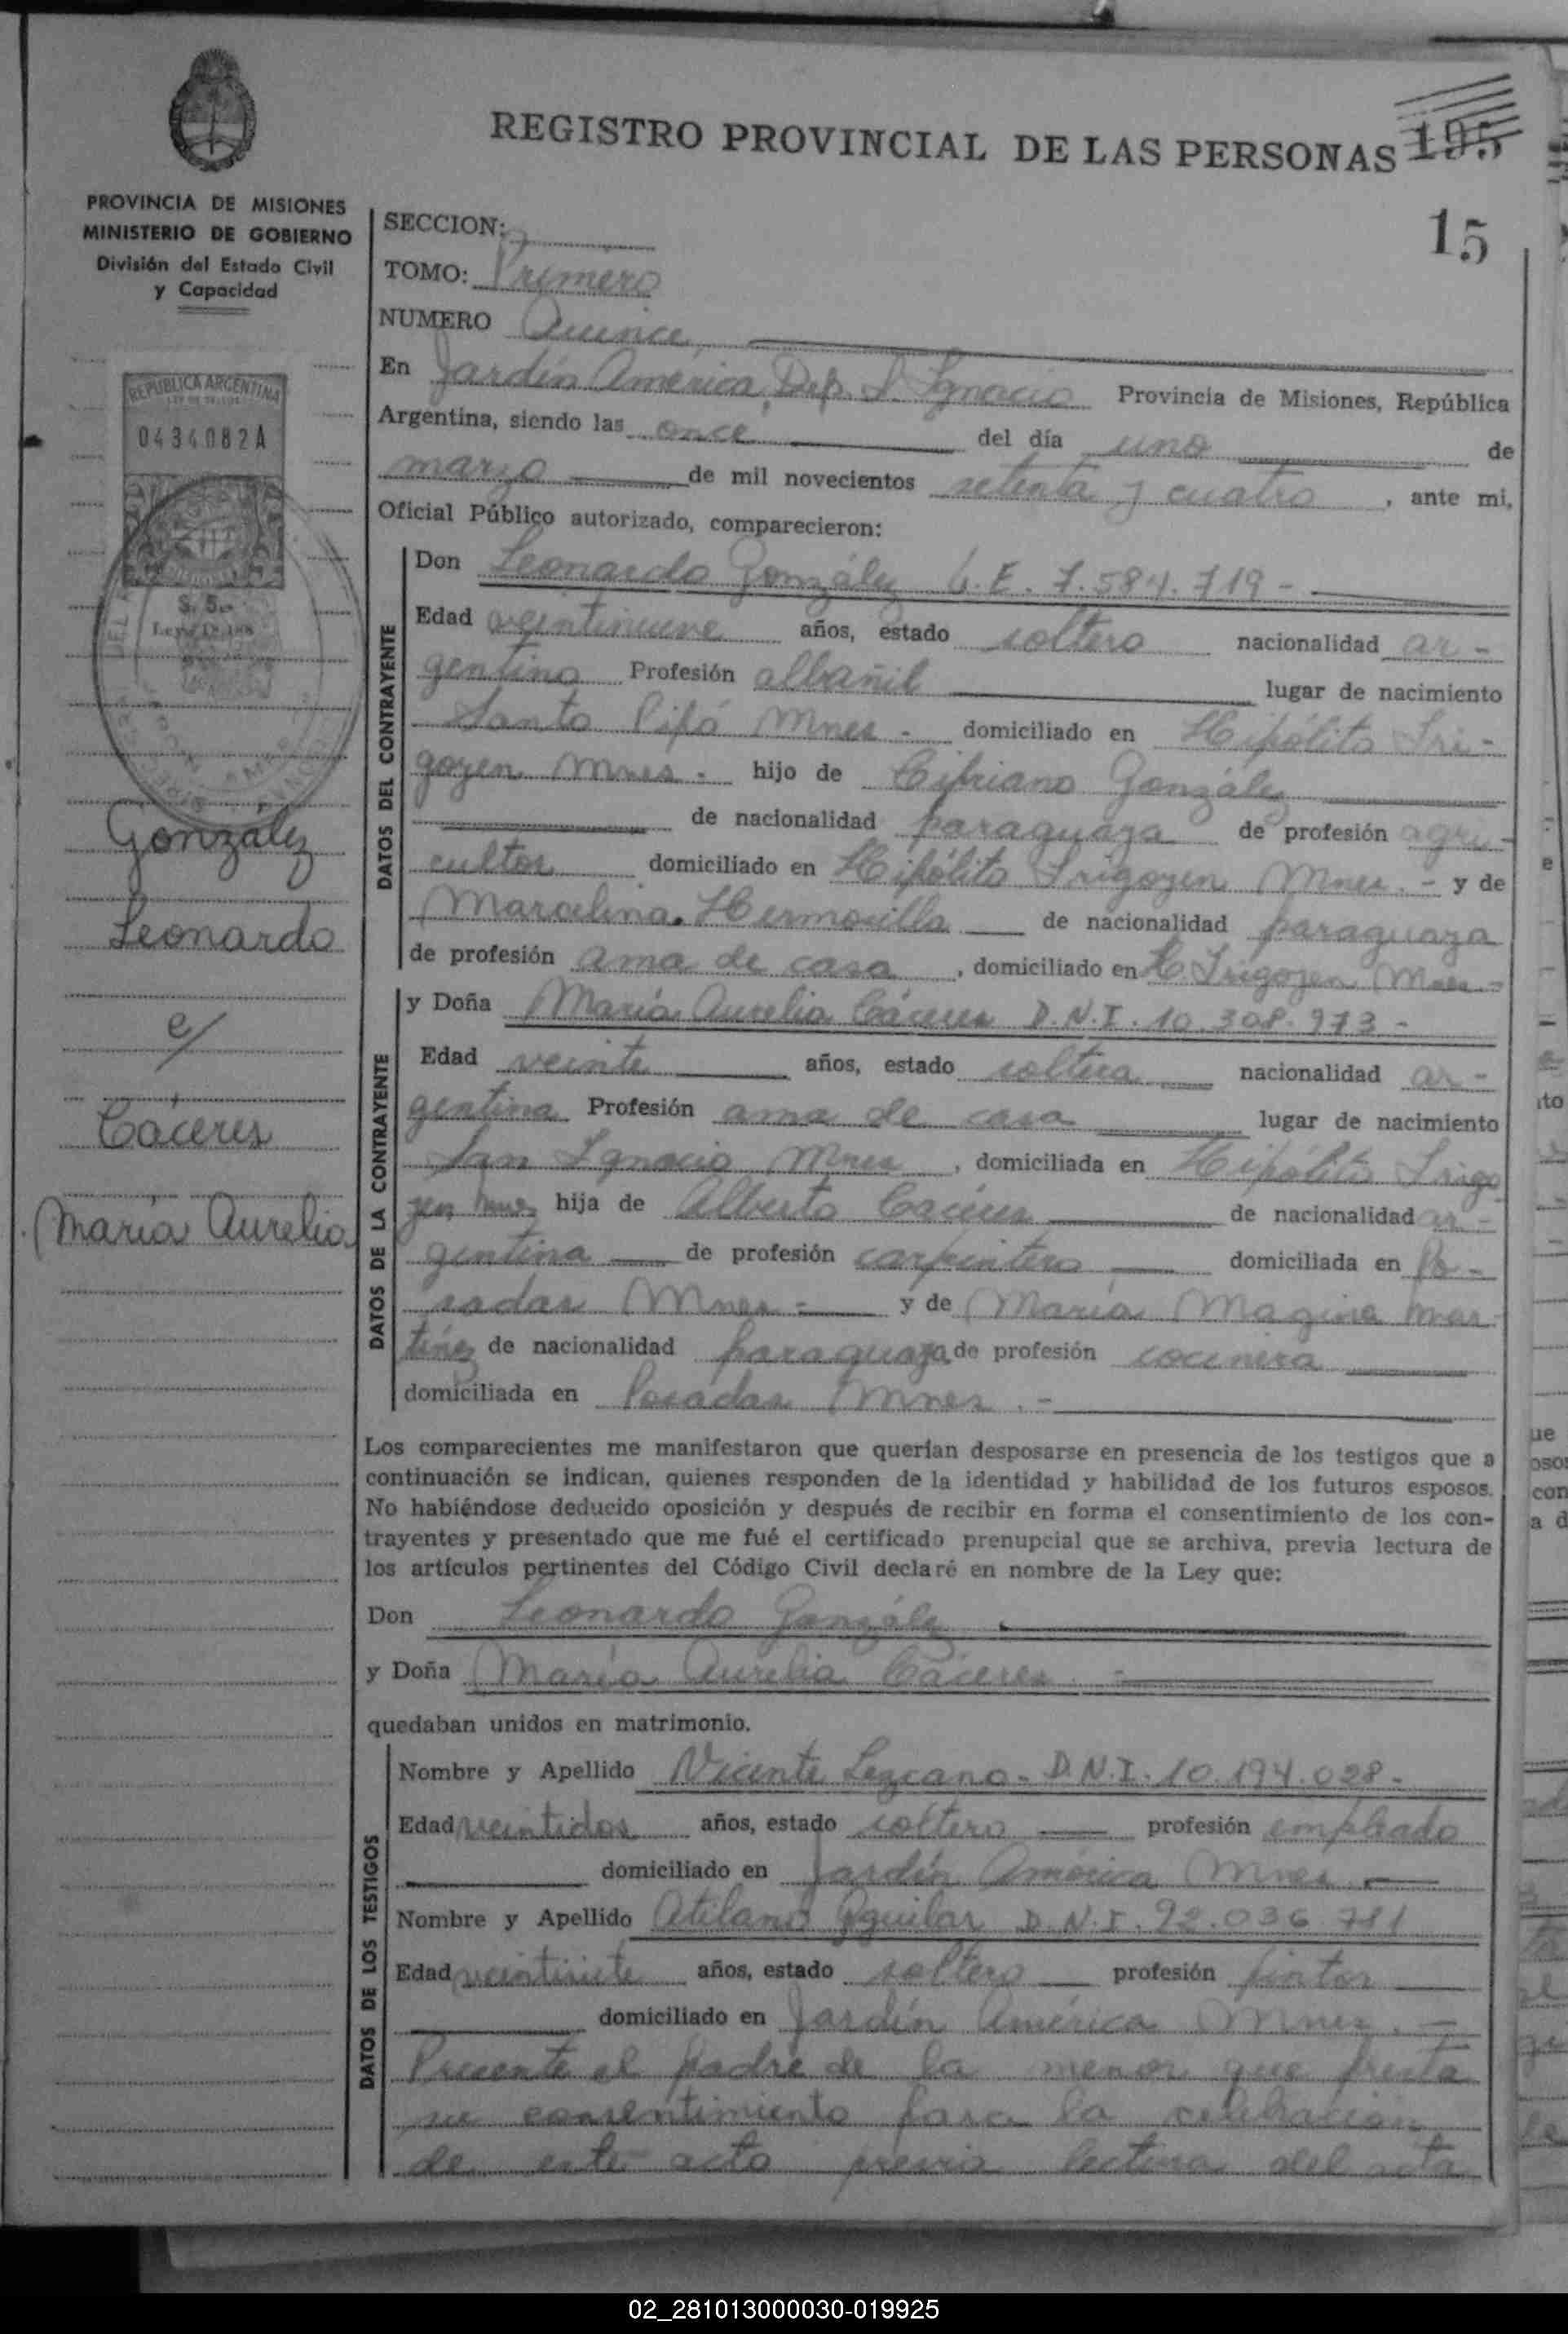 REGISTRO PROVINCIAL DE LAS PERSONAS 195
15
PROVINCIA DE MISIONES
MINISTERIO DE GOBIERNO
División del Estado Civil
y Capacidad
REPUBLICA ARGENTINA
0434082A
$. 5.-
González
Leonardo
c/
Cáceres
María Aurelia
SECCION:
TOMO: Primero
NUMERO Quince
En Jardín América, Dep. S. Ignacio Provincia de Misiones, República
Argentina, siendo las once del día uno de
marzo de mil novecientos setenta y cuatro, ante mi,
Oficial Público autorizado, comparecieron:
DATOS DEL CONTRAYENTE
Don Leonardo González L.E. 7.584.719-
Edad veintinueve años, estado soltero nacionalidad ar-
gentina Profesión albañil lugar de nacimiento
Santo Pipó Mnes - domiciliado en Hipólito Iri-
goyen Mnes - hijo de Cipriano González
de nacionalidad paraguaya de profesión agri-
cultor domiciliado en Hipólito Irigoyen Mnes. - y de
Marcelina Hermosilla de nacionalidad paraguaya
de profesión ama de casa, domiciliado en H. Irigoyen Mnes -
DATOS DE LA CONTRAYENTE
y Doña María Aurelia Cáceres D.N.I. 10.308.973 -
Edad veinte años, estado soltera nacionalidad ar-
gentina Profesión ama de casa lugar de nacimiento
San Ignacio Mnes, domiciliada en Hipólito Irigo
yen Mnes hija de Alberto Cáceres de nacionalidad ar-
gentina de profesión carpintero domiciliada en Po-
sadas Mnes - y de María Magina Mar-
tínez de nacionalidad paraguaya de profesión cocinera
domiciliada en Posadas Mnes. -
Los comparecientes me manifestaron que querían desposarse en presencia de los testigos que a
continuación se indican, quienes responden de la identidad y habilidad de los futuros esposos.
No habiéndose deducido oposición y después de recibir en forma el consentimiento de los con-
trayentes y presentado que me fué el certificado prenupcial que se archiva, previa lectura de
los artículos pertinentes del Código Civil declaré en nombre de la Ley que:
Don Leonardo González
y Doña María Aurelia Cáceres -
quedaban unidos en matrimonio.
DATOS DE LOS TESTIGOS
Nombre y Apellido Vicente Lezcano - D.N.I. 10.194.028 -
Edad veintidos años, estado soltero profesión empleado
domiciliado en Jardín América Mnes
Nombre y Apellido Atilano Aguilar D.N.I. 92.036.781
Edad veintisiete años, estado soltero profesión pintor
domiciliado en Jardín América Mnes. -
Presente el padre de la menor que presta
su consentimiento para la celebración
de este acto previa lectura del acta
02_281013000030-019925